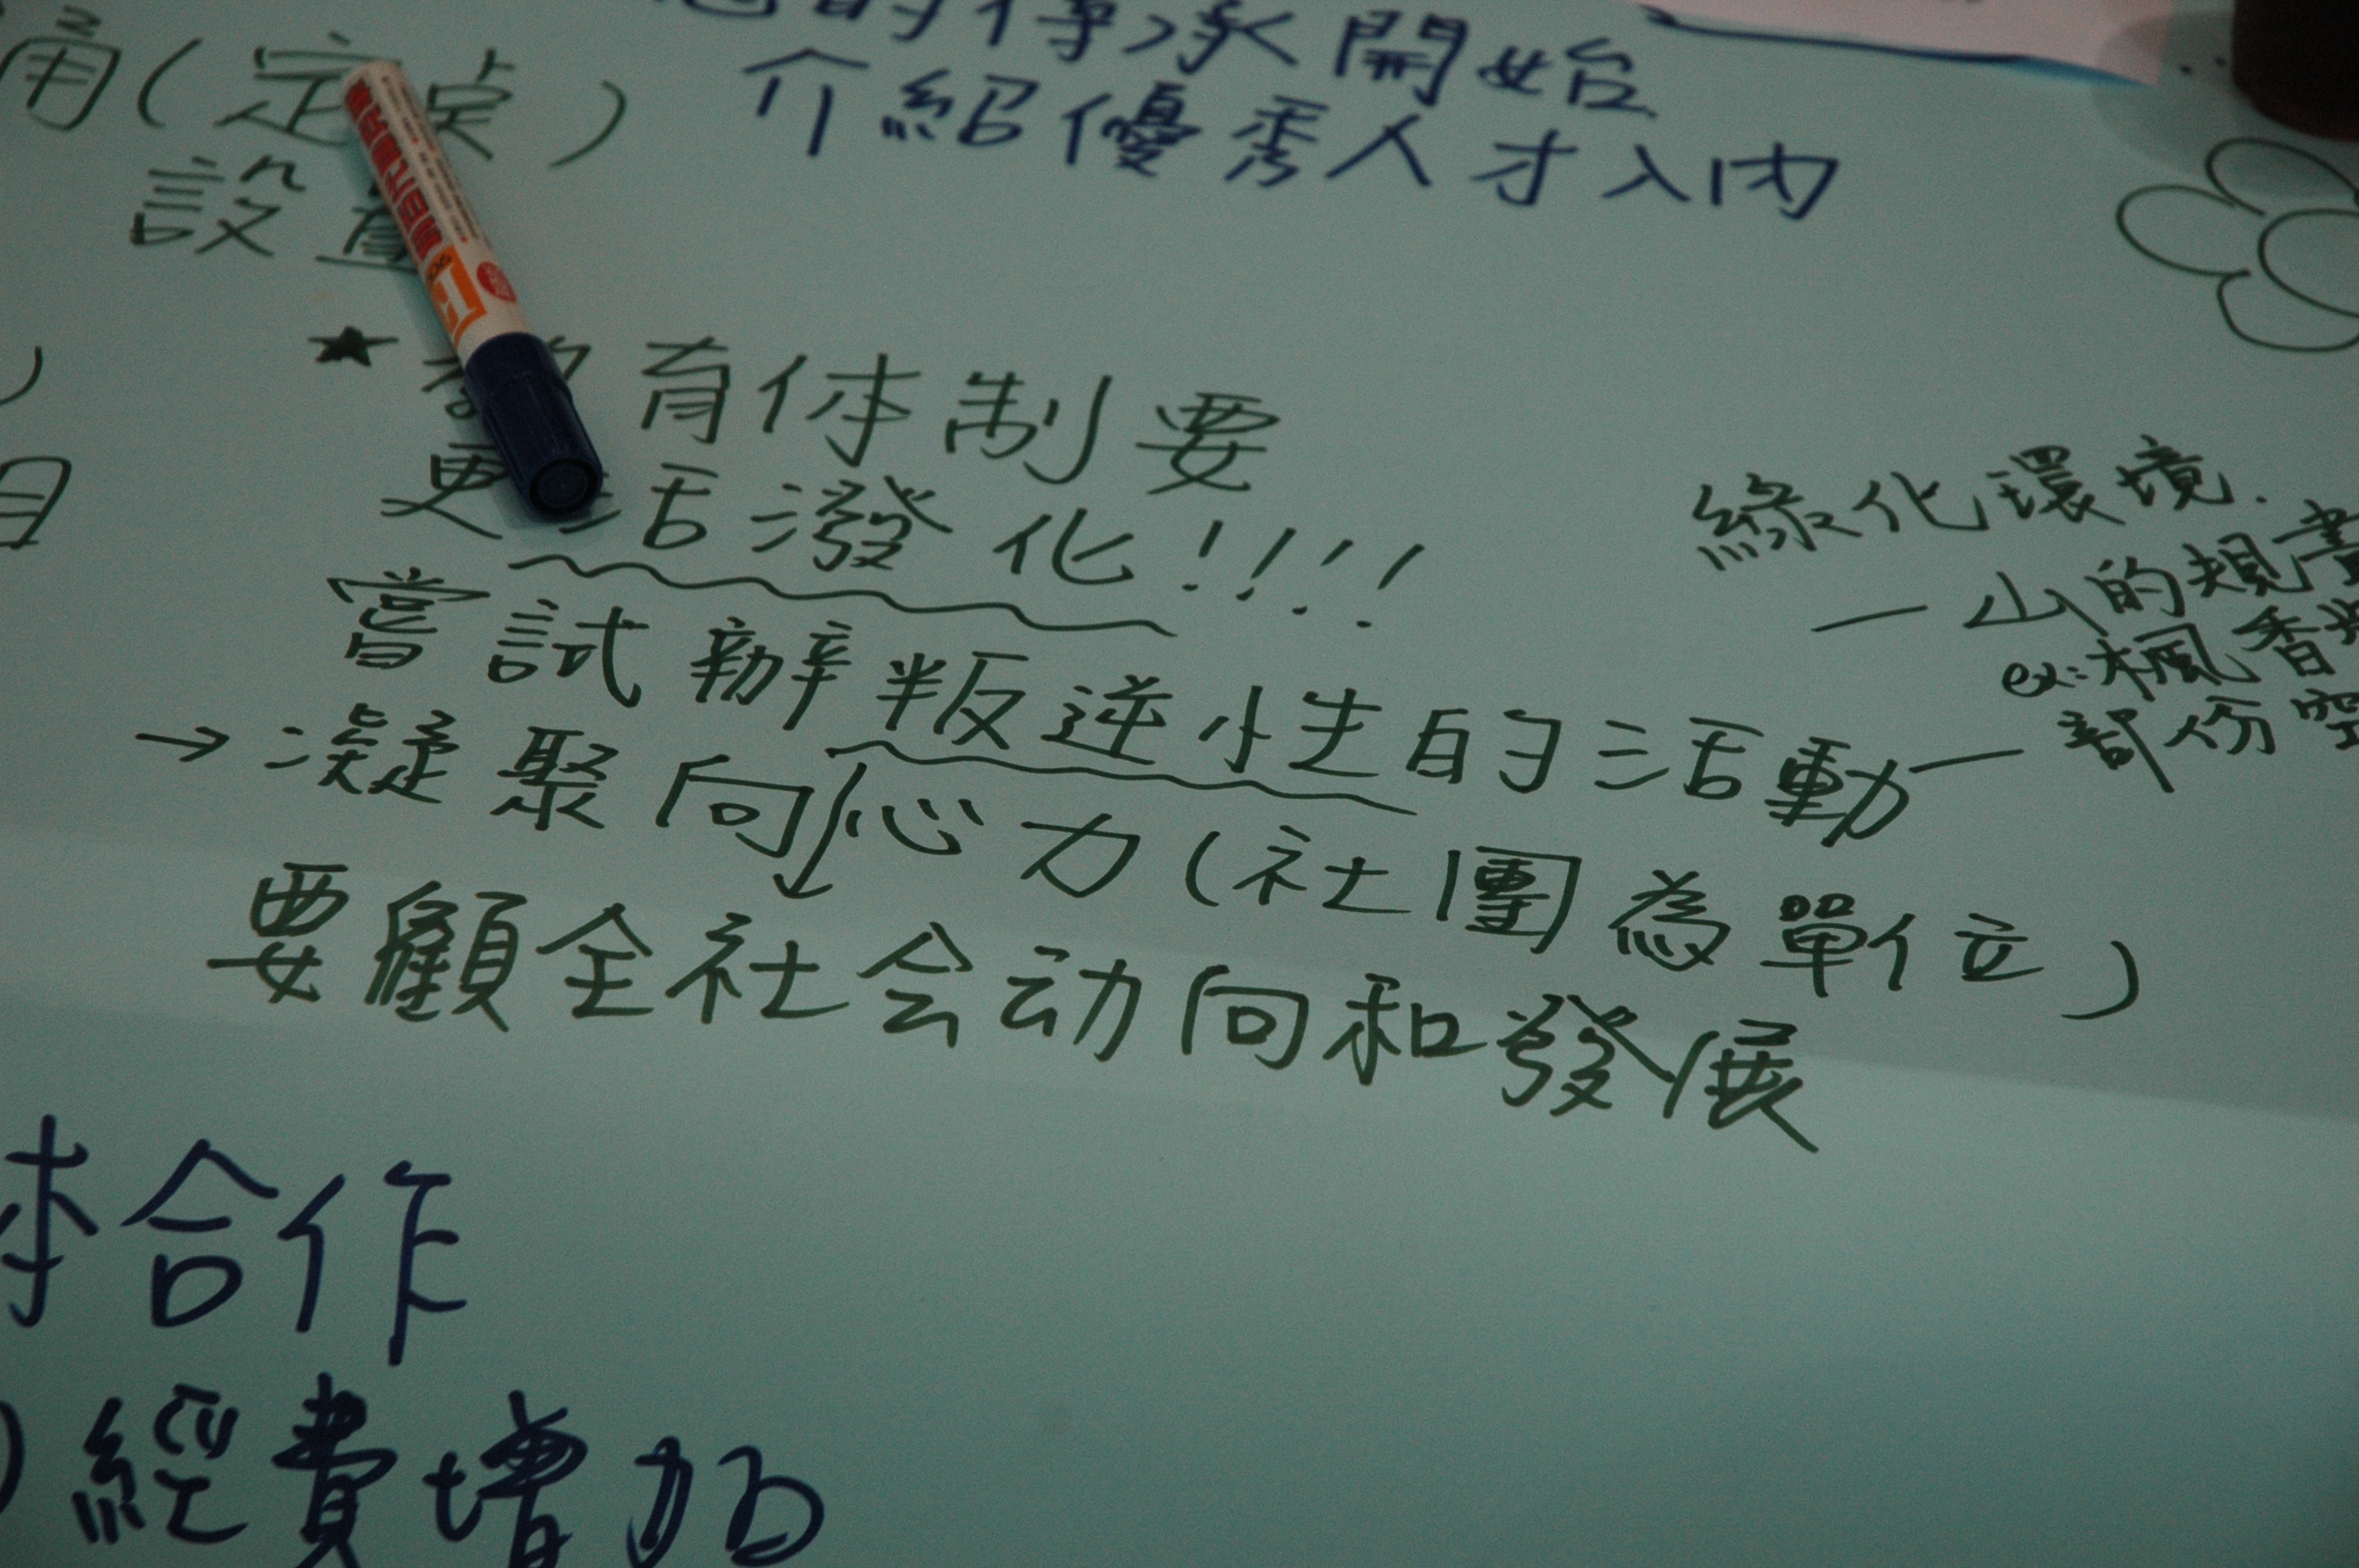 的傳承開始
介紹優秀人才入內
(定点)
設置
★教育体制要
更活潑化!!!!
嘗試辦叛逆性的活動
→凝聚向心力(社團為單位)
要顧全社会动向和發展
綠化環境.
—山的規畫
ex:楓香
—部份空
合作
經費增加